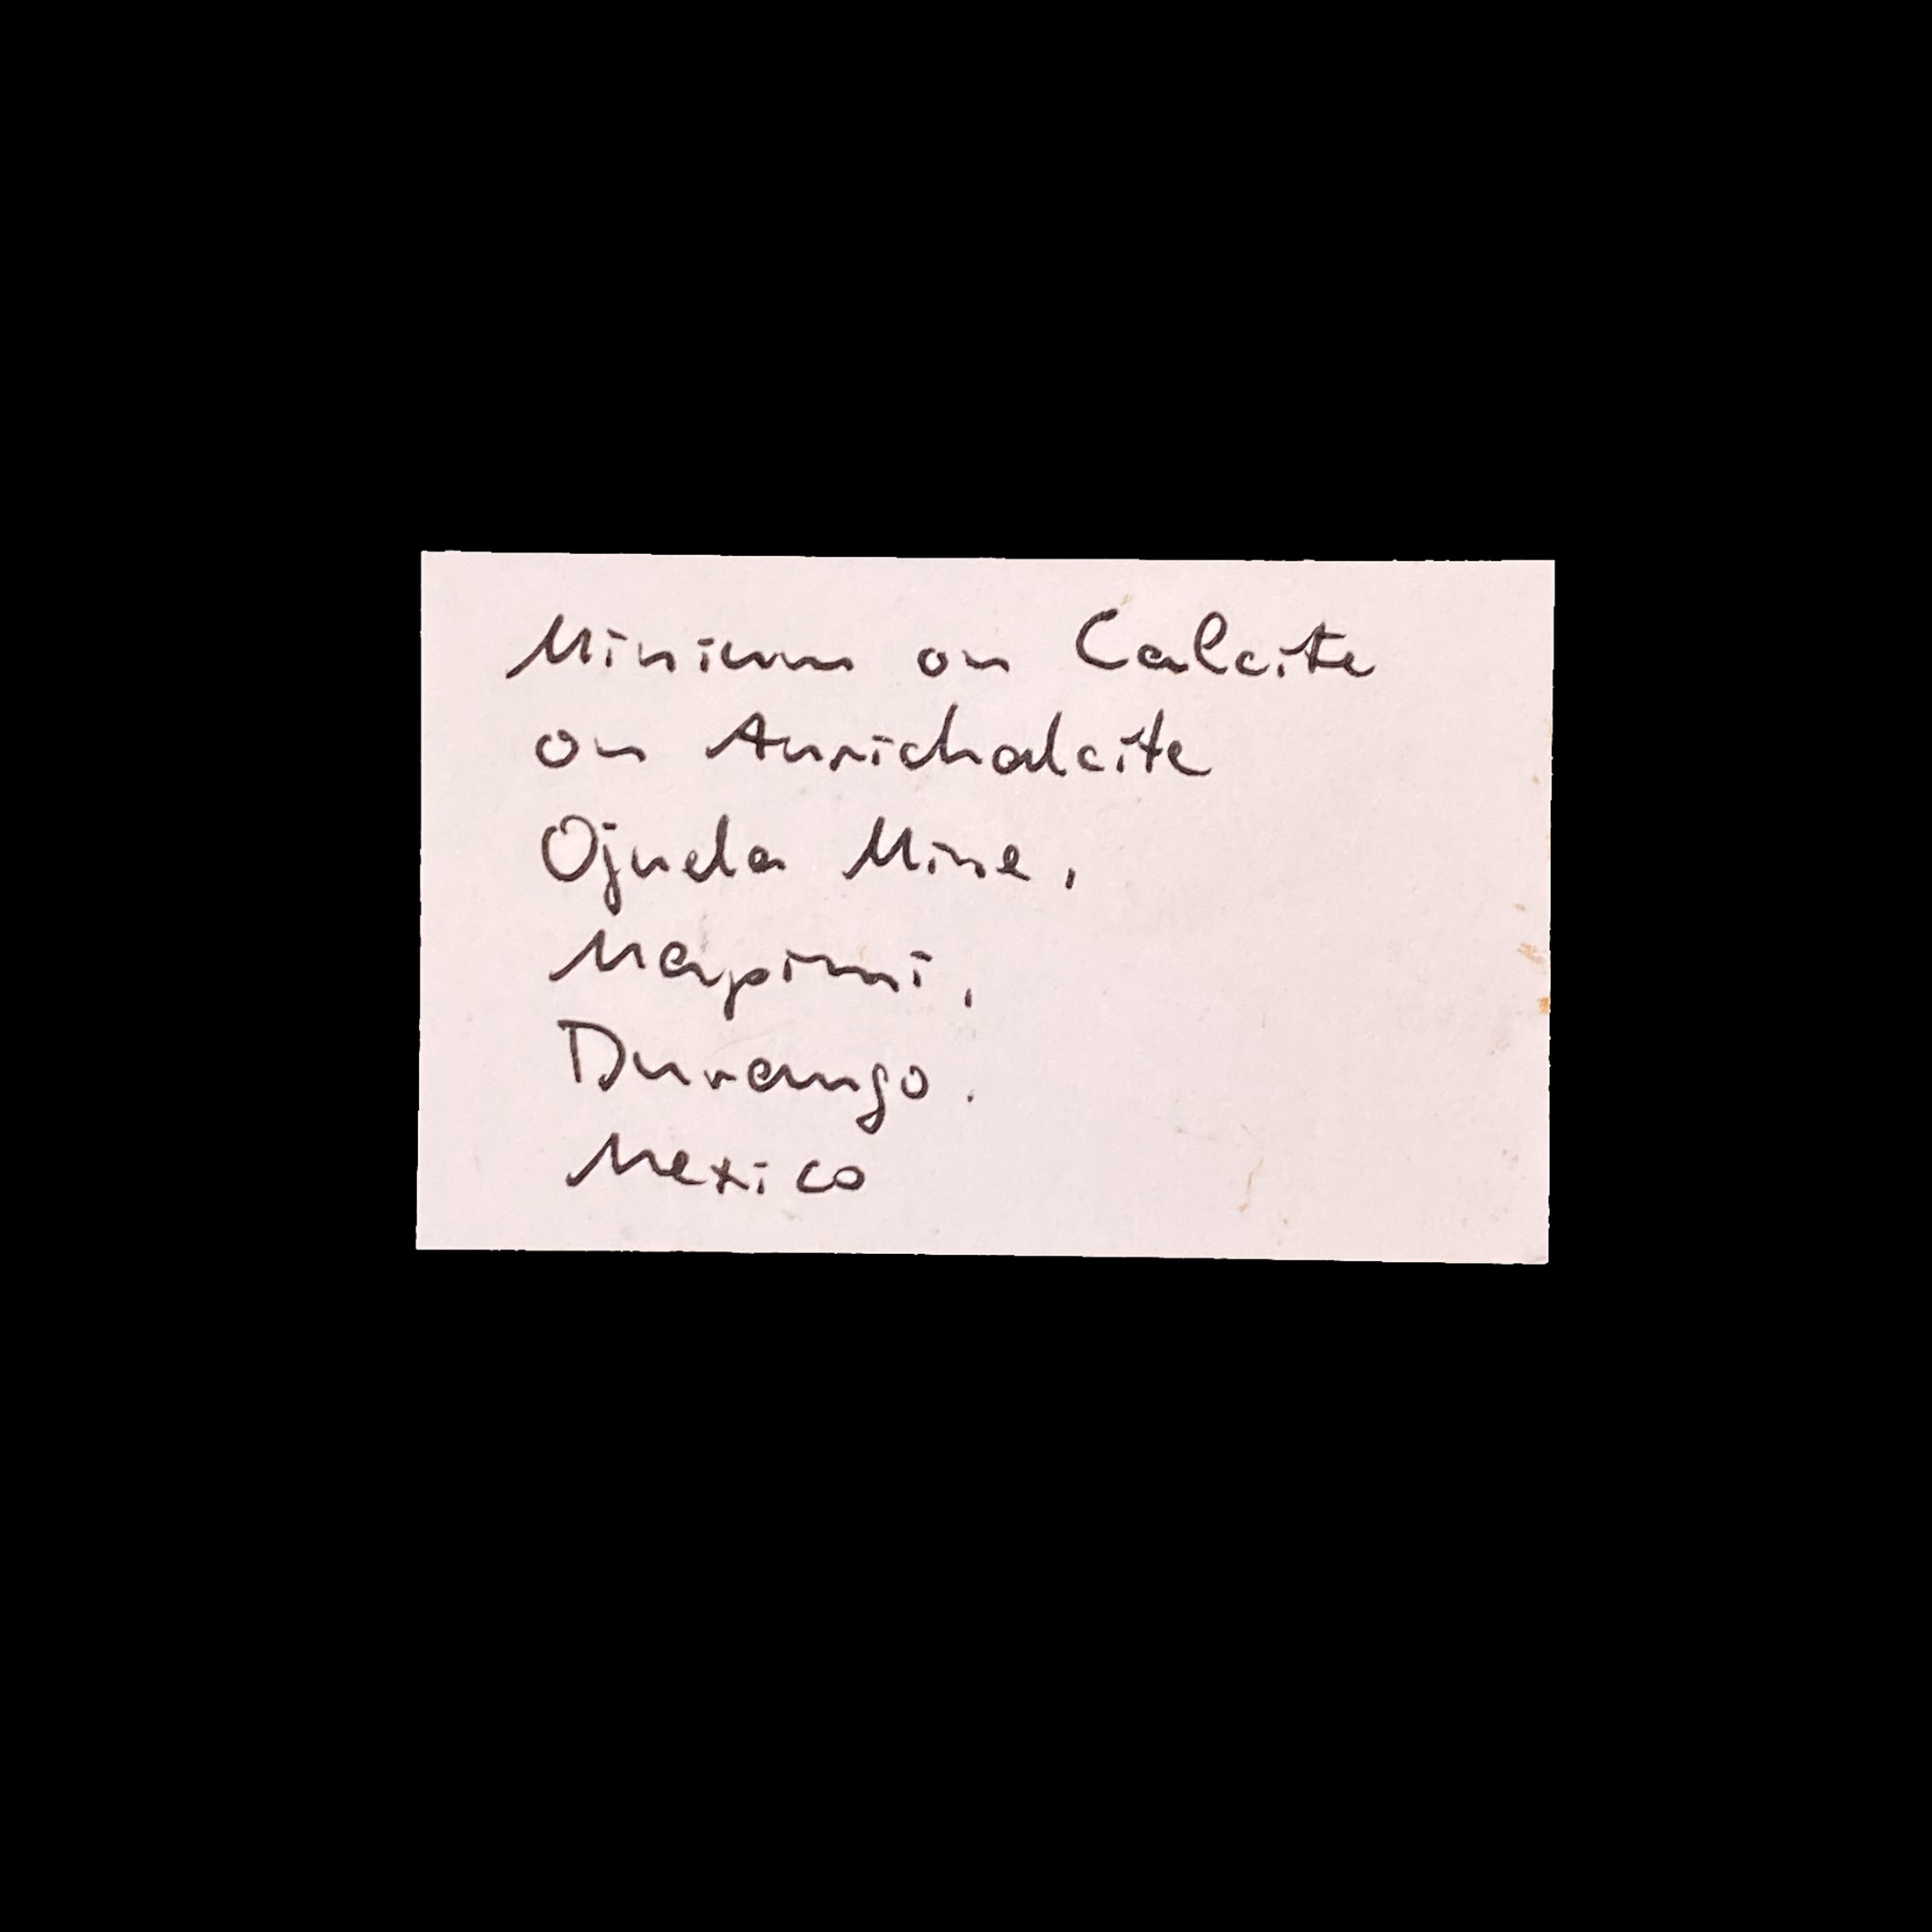 Minium on Calcite
on Aurichalcite
Ojuela Mine,
Mapimi,
Durango.
Mexico